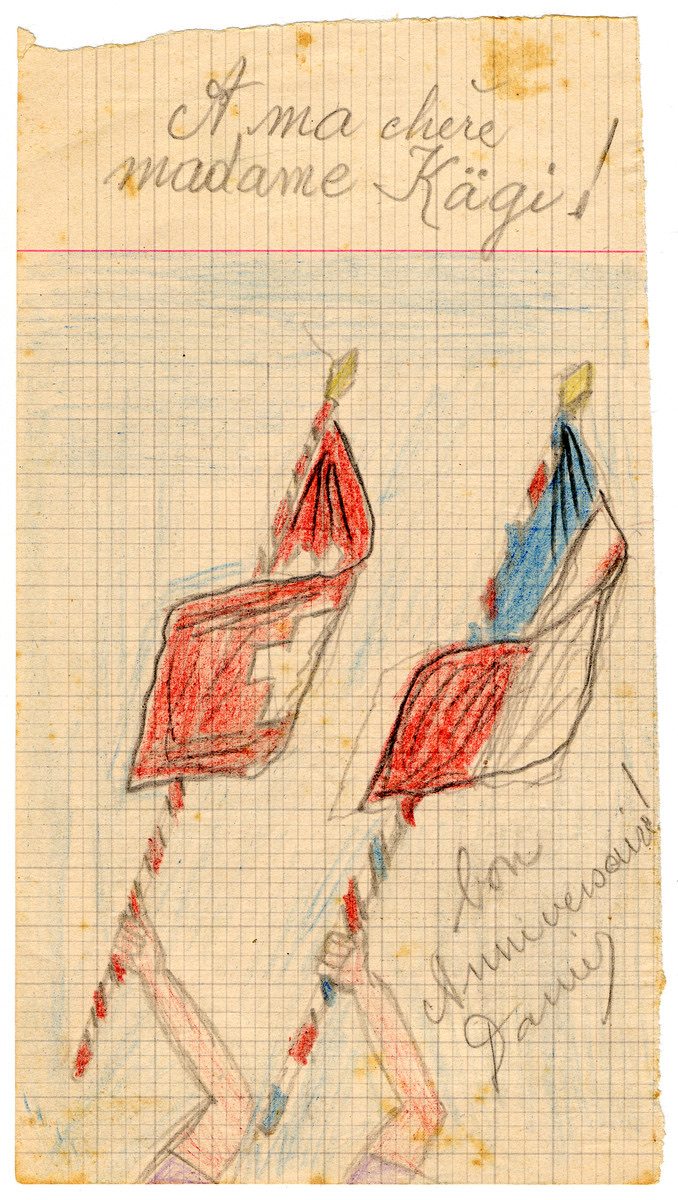 A ma cherè
madame Kägi!
bon
Anniversaire!